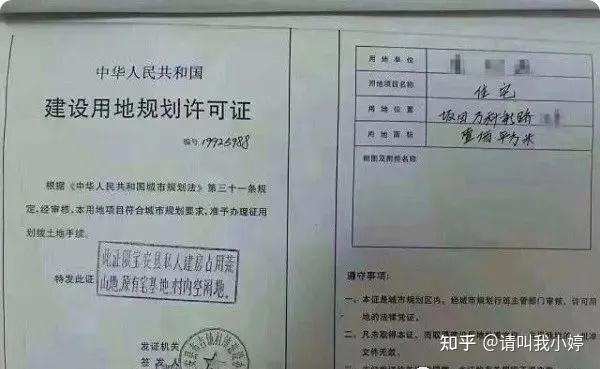 中华人民共和国
建设用地规划许可证
编号 19925988
根据《中华人民共和国城市规划法》第三十一条规
定,经审核,本用地项目符合城市规划要求,准予办理征用
划拨土地手续。
特发此证
此证限宝安县私人建房占用荒
山地、原有宅基地、村内空闲地。
发证机关
签发人
用地单位
用地项目名称 住宅
用地位置 坂田万科
用地面积 壹佰平方米
附图及附件名称
遵守事项:
一、本证是城市规划区内,经城市规划行政主管部门审核,许可用
地的法律凭证。
二、凡未取得本证,
文件无效。
知乎 @请叫我小婷